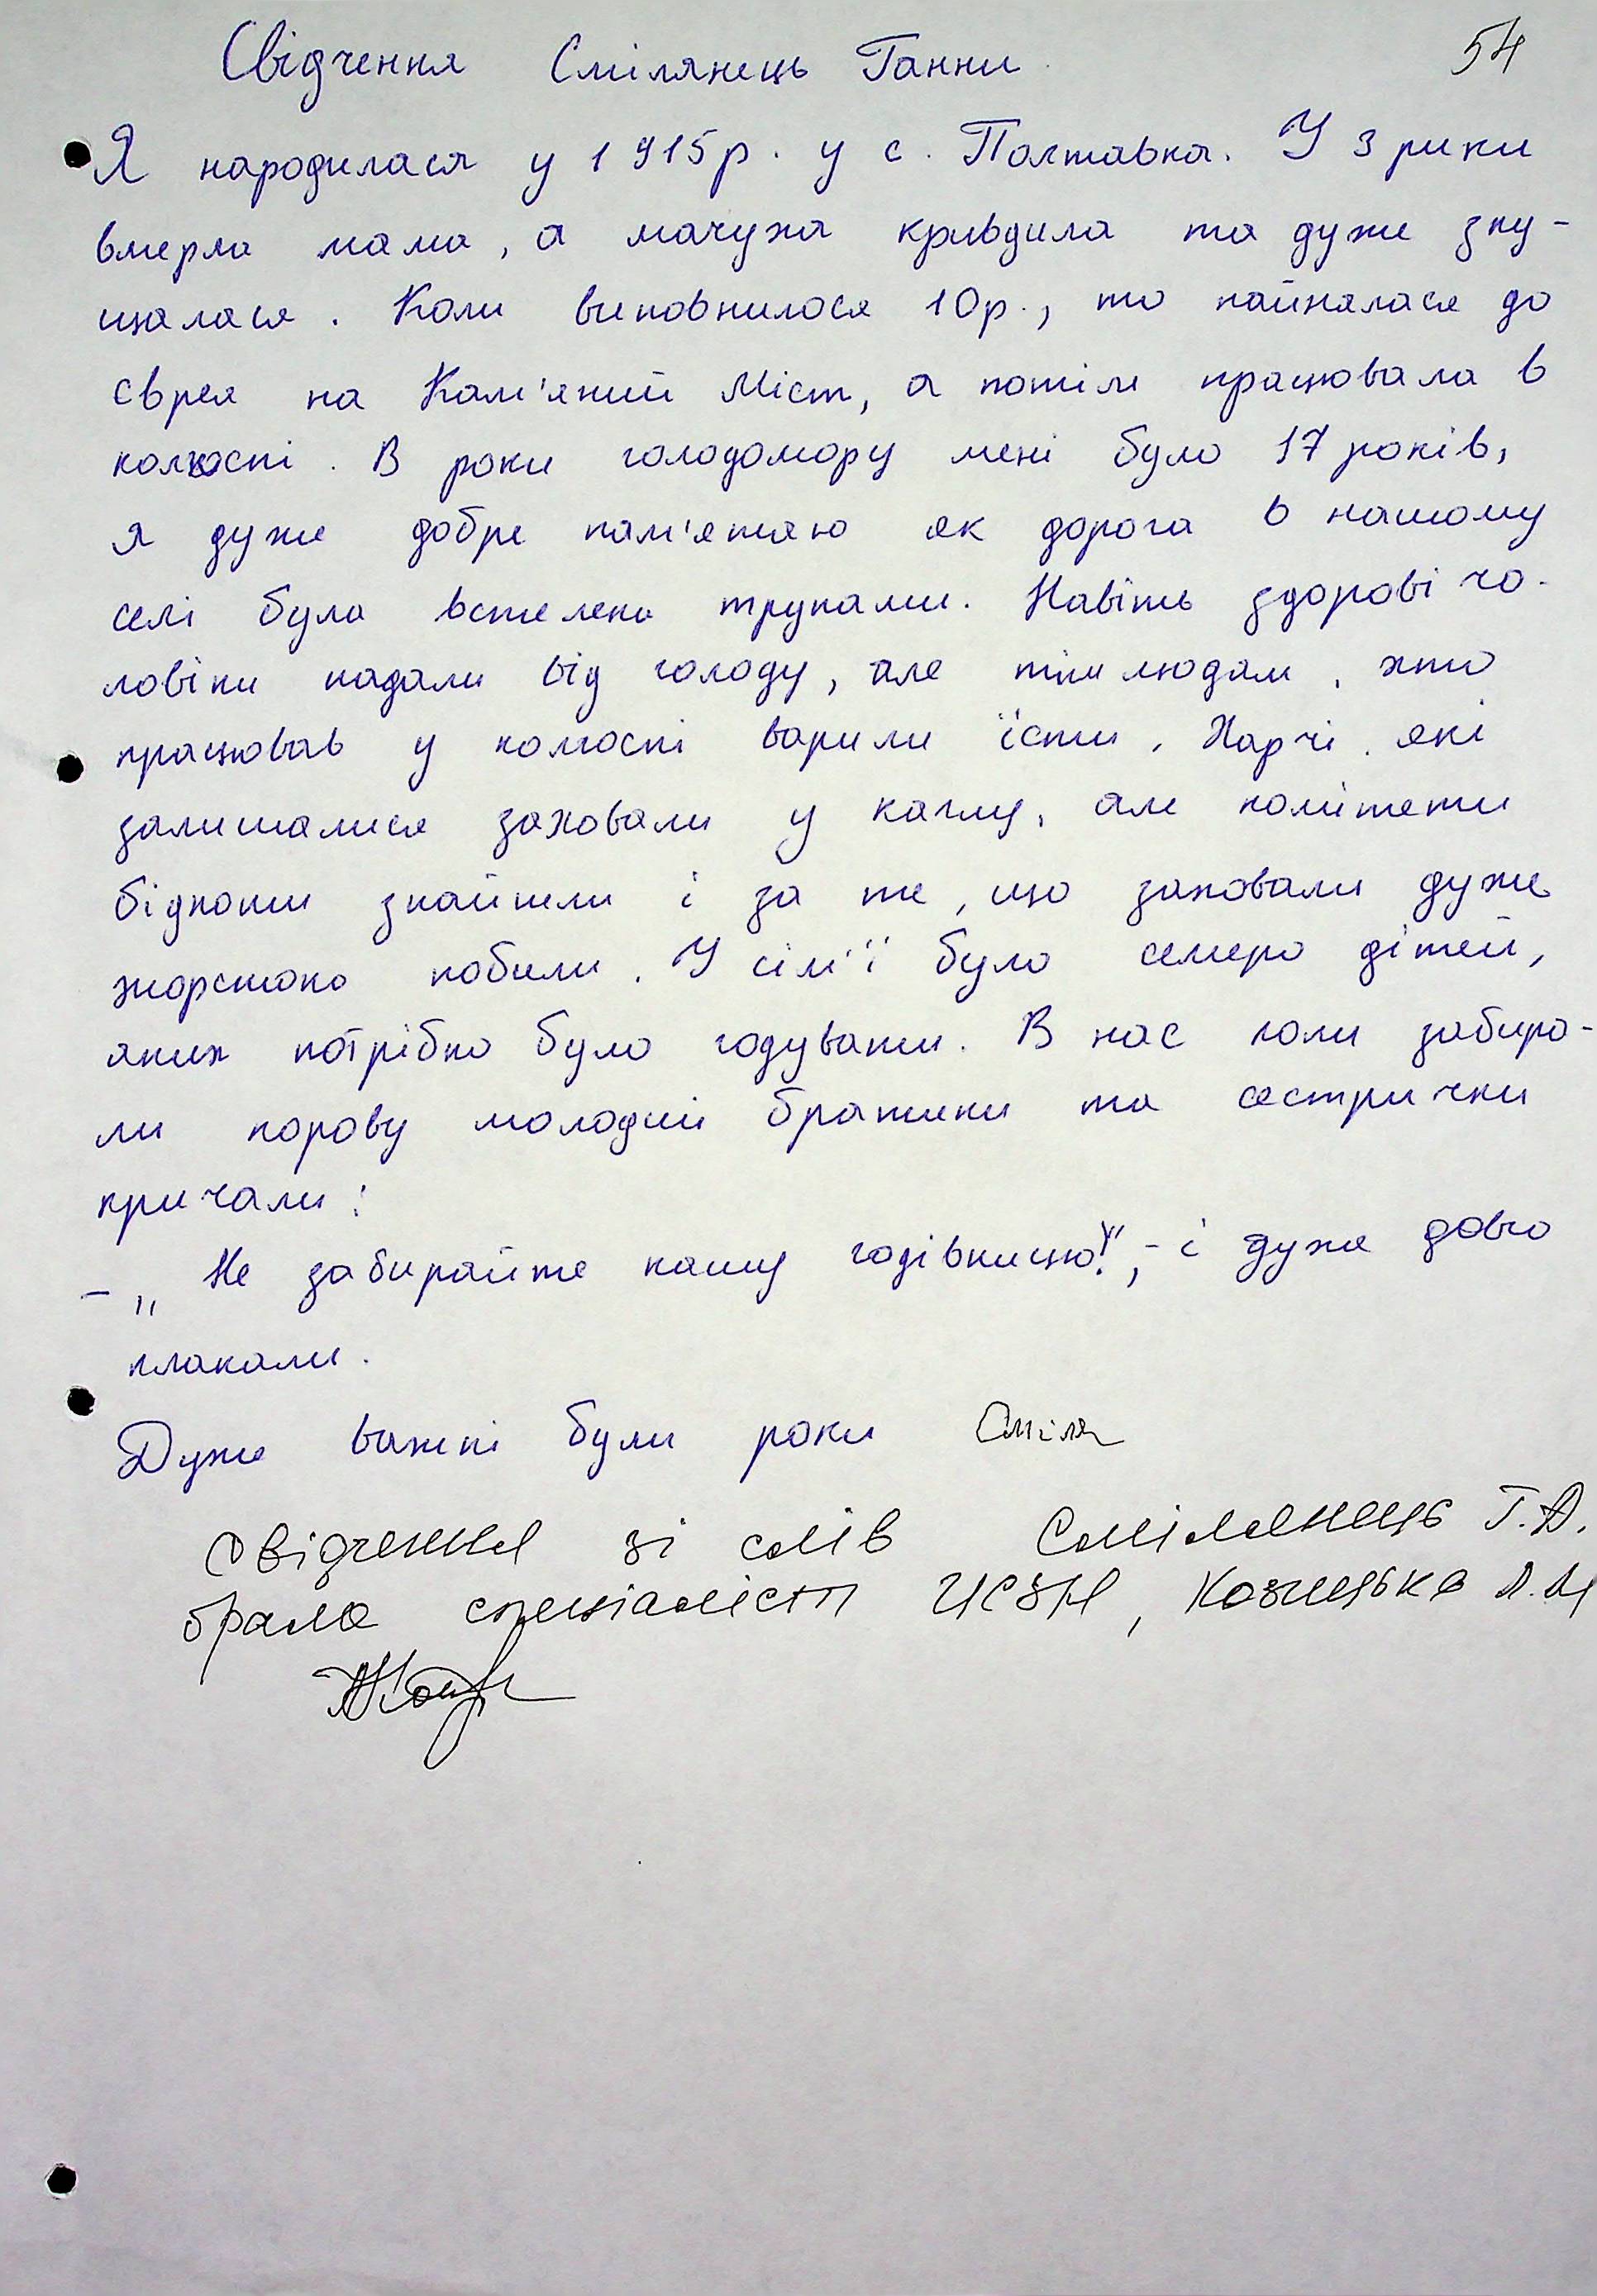 Свідчення Смілянець Ганни
54
Я народилася у 1915р. у с. Полтавка. У 3 рики
вмерла мама, а мачуха кривдила та дуже зну-
щалася. Коли виповнилося 10р., то найнялася до
єврея на Кам'яний Міст, а потім працювала в
колгоспі. В роки голодомору мені було 17 років,
я дуже добре пам'ятаю як дорога в нашому
селі була встелена трупами. Навіть здорові чо-
ловіки падали від голоду, але тим людям, хто
працював у колгоспі варили їсти. Харчі, які
залишалися заховали у каглу, але комітети
бідноти знайшли і за те, що заховали дуже
жорстоко побили. У сім'ї було семеро дітей,
яких потрібно було годувати. В нас коли забира-
ли корову молодші братики та сестрички
кричали:
– „Не забирайте нашу годівницю!", – і дуже довго
плакали.
Дуже важкі були роки Сміля
свідчення зі слів Смілянець Г.А.
брала спеціаліст ЦСЗН, Козицька Л.М